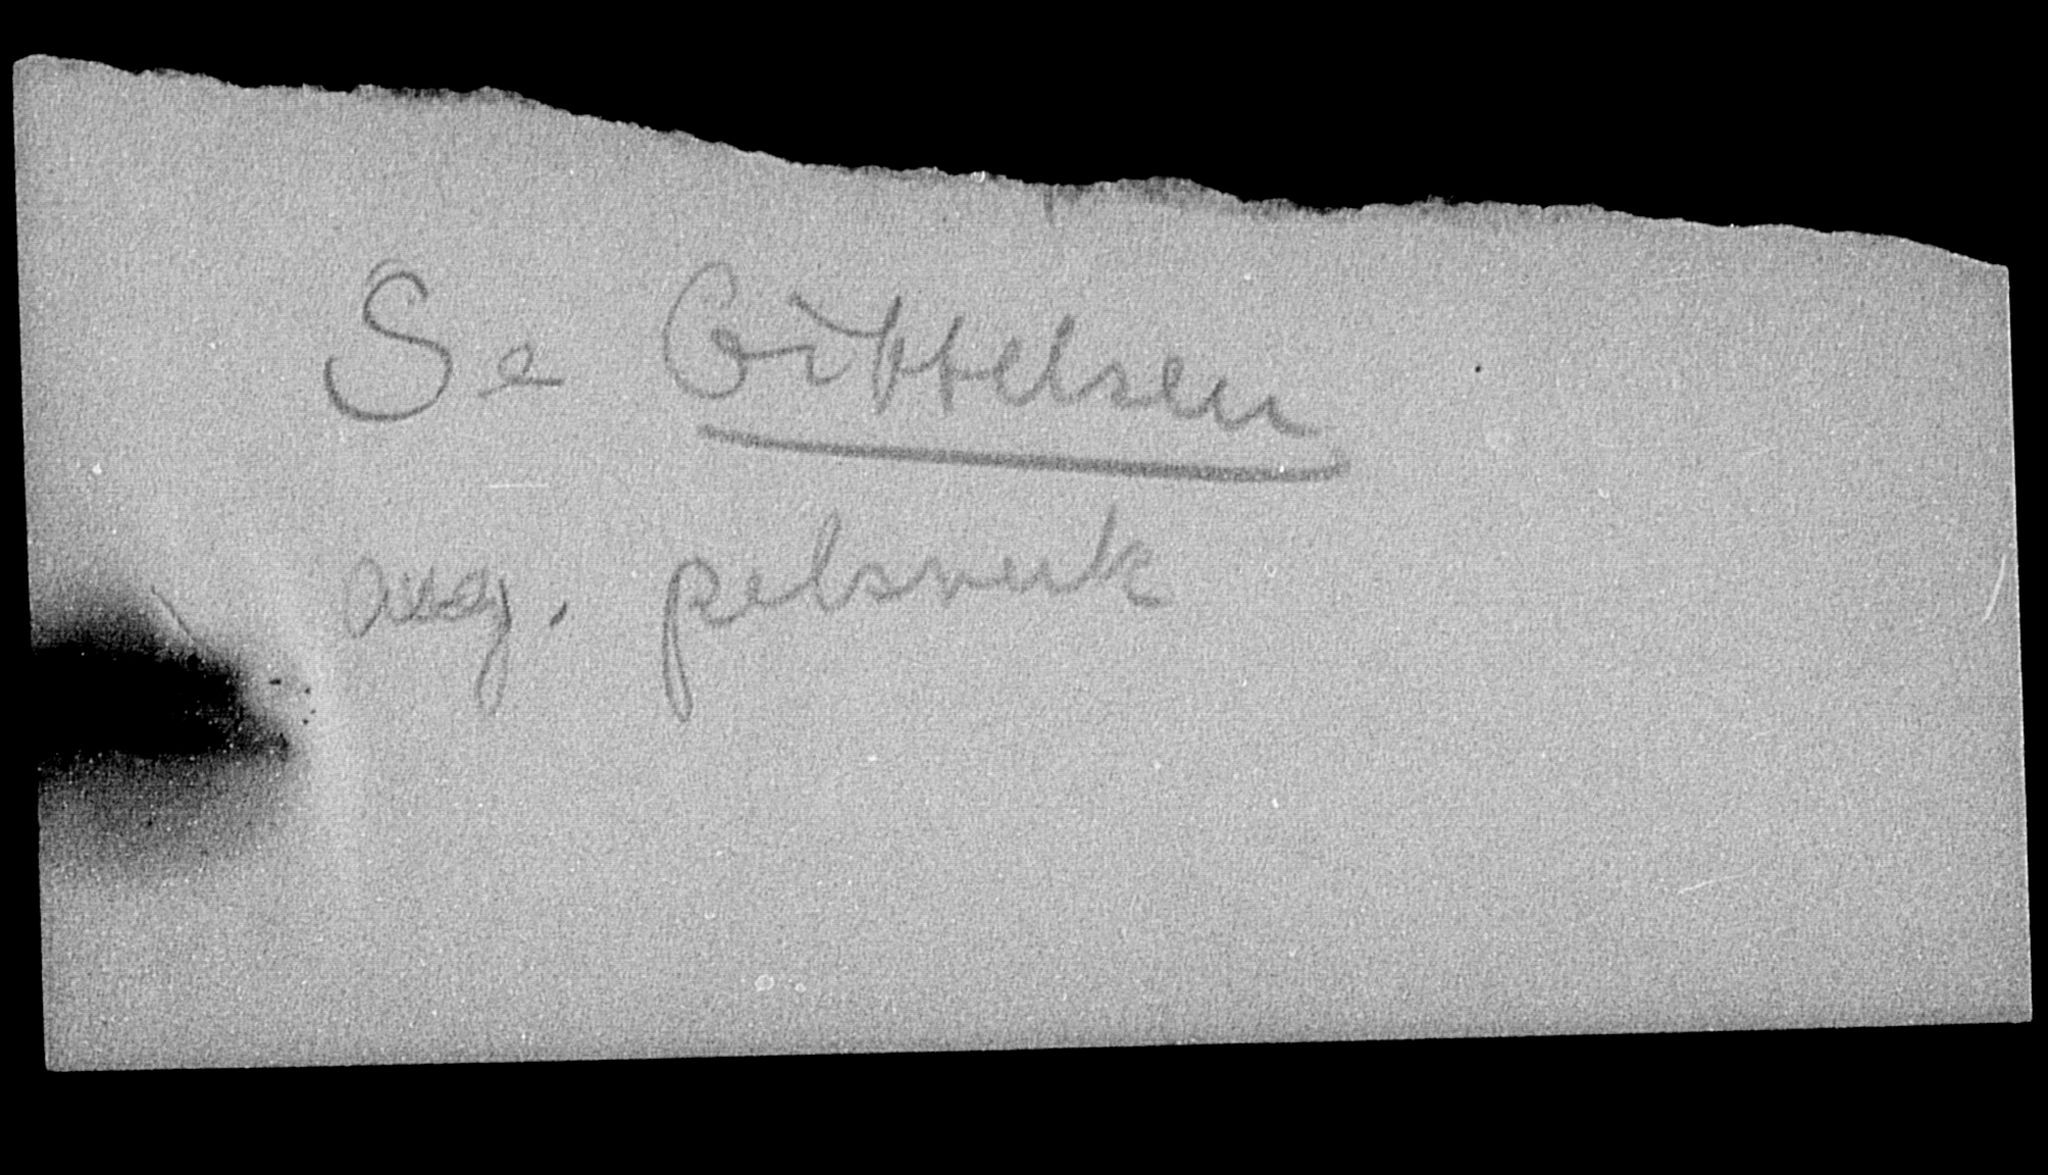 Se Göttelsen
ang. pelsverk